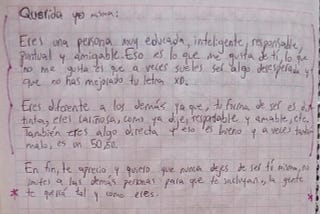 Querida yo misma:
Eres una persona muy educada, inteligente, responsable,
puntual y amigable. Eso es lo que me gusta de ti, lo que
no me gusta es que a veces sueles ser algo desesperada y
que no has mejorado tu letra XD.
Eres diferente a los demás ya que, tu forma de ser es dis
tinta, eres cariñosa, como ya dije, responsable y amable, etc.
También eres algo directa y eso es bueno y a veces también
malo, es un 50,50.
En fin, te aprecio y quiero que nunca dejes de ser tí misma, no
imites a las demás personas para que te incluyan, la gente
te querrá tal y como eres.